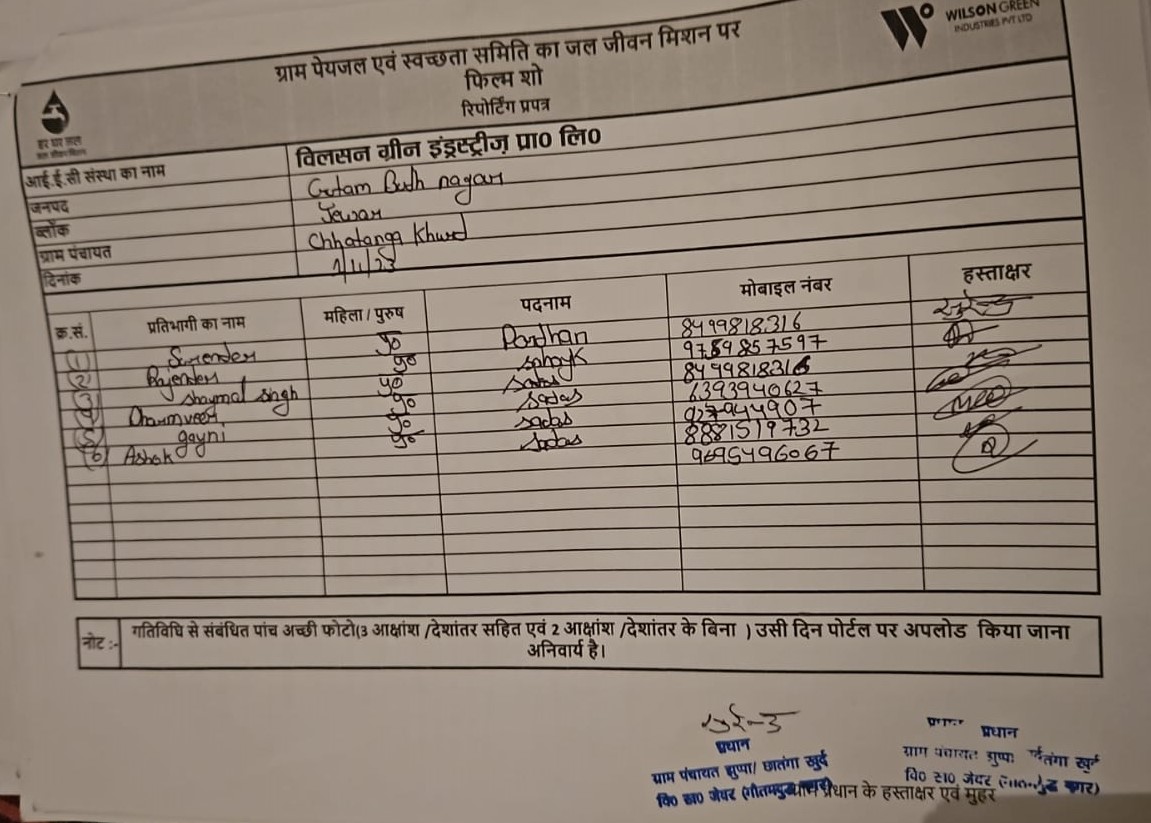 WILSON GREEN
INDUSTRIES PVT LTD
ग्राम पेयजल एवं स्वच्छता समिति का जल जीवन मिशन पर
फिल्म शो
रिपोर्टिंग प्रपत्र
हर घर जल
आई.ई.सी संस्था का नाम विलसन ग्रीन इंड्रस्ट्रीज़ प्रा० लि०
जनपद Gutam Budh nagar
ब्लॉक Jewar
ग्राम पंचायत Chhatanga Khurd
दिनांक
क्र.सं. प्रतिभागी का नाम महिला / पुरुष पदनाम मोबाइल नंबर हस्ताक्षर
(1) Surender पु० Pardhan 8499818316
(2) Rajender पु० sahayk 9759857597
(3) Shaymal singh पु० 8499818316
(4) Dharmveer पु० sadas 6393940627
(5) gayni पु० sadas 8881519732
(6) Ashok पु० sadas 9695496067
नोट :- गतिविधि से संबंधित पांच अच्छी फोटो(3 आक्षांश /देशांतर सहित एवं 2 आक्षांश /देशांतर के बिना ) उसी दिन पोर्टल पर अपलोड किया जाना
अनिवार्य है।
प्रधान
ग्राम पंचायत झुप्पा/ छातंगा खुर्द
वि० ख० जेवर
प्रधान
ग्राम पंचायत खुर्द
वि० ख० जेवर
प्रधान के हस्ताक्षर एवं मुहर